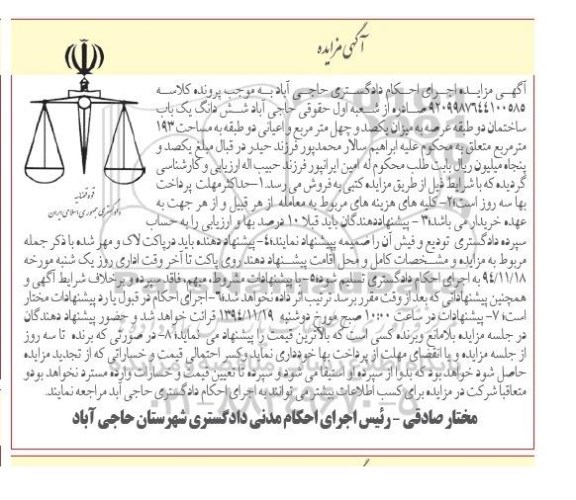 آگهی مزایده
آگهی مزایده اجرای احکام دادگستری حاجی آباد به موجب پرونده کلاسه
۹۲۰۹۹۸۷۶۴۴۱۰۰۵۸۵ صادره از شعبه اول حقوقی حاجی آباد شش دانگ یک باب
ساختمان دو طبقه عرصه به میزان یکصد و چهل متر مربع و اعیانی دو طبقه به مساحت ۱۹۳
مترمربع متعلق به محکوم علیه ابراهیم سالار محمدپور فرزند حیدر در قبال مبلغ یکصد و
پنجاه میلیون ریال بابت طلب محکوم له امین ایرانپور فرزند حبیب اله ارزیابی و کارشناسی
گردیده که با شرایط ذیل از طریق مزایده کتبی به فروش می رسد.۱-حداکثر مهلت پرداخت
بها سه روز است۲- کلیه های هزینه های مربوط به معامله از هر قبیل و از هر جهت به
عهده خریدار می باشد۳- پیشنهاددهندگان باید قبلا ۱۰ درصد بها و ارزیابی را به حساب
سپرده دادگستری تودیع و فیش آن را ضمیمه پیشنهاد نمایند۴- پیشنهاد دهنده باید در پاکت لاک و مهر شده با ذکر جمله
مربوط به مزایده و مشخصات کامل و محل اقامت پیشنهاد دهند روی پاکت تا آخر وقت اداری روز یک شنبه مورخه
۹۴/۱۱/۱۸ به اجرای احکام دادگستری تسلیم شود۵-با پیشنهادات مشروط، مبهم، فاقد سپرده و برخلاف شرایط آگهی و
همچنین پیشنهاداتی که بعد از وقت مقرر برسد ترتیب اثر داده نخواهد شد۶-اجرای احکام در قبول یا رد پیشنهادات مختار
است۷- پیشنهادات در ساعت ۱۰:۰۰ صبح مورخ دوشنبه ۱۳۹۴/۱۱/۱۹ قرائت خواهد شد و حضور پیشنهاد دهندگان
در جلسه مزایده بلامانع و برنده کسی است که بالاترین قیمت را پیشنهاد می نماید۸- در صورتی که برنده تا سه روز
از جلسه مزایده و یا انقضای مهلت از پرداخت بها خودداری نماید و کسر احتمالی قیمت و خساراتی که از تجدید مزایده
حاصل شود خواهد بود که بدوا از سپرده او استیفا می شود و سپرده تا تعیین قیمت و خسارات وارده مسترد نخواهد بود و
متعاقبا شرکت در مزایده برای کسب اطلاعات بیشتر می توانند به اجرای احکام دادگستری حاجی آبد مراجعه نمایند.
مختار صادقی - رئیس اجرای احکام مدنی دادگستری شهرستان حاجی آباد
قوه قضاییه
دادگستری جمهوری اسلامی ایران
۰۲۱-۸۸۳۴۹۶۷۰-۵